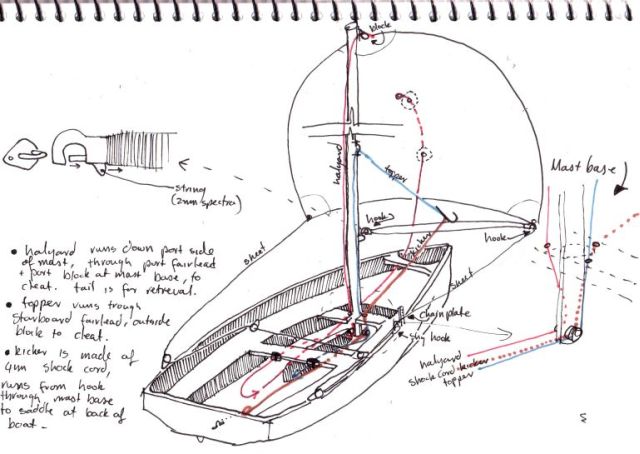 block
halyard
topper
Mast base
string
(2mm spectra)
hook
hook
kicker
sheet
sheet
chainplate
sny hook
• halyard runs down port side
of mast, through port fairhead
+ port block at mast base, to
cleat. tail is for retreval.
• topper runs trough
starboard fairlead, outside
block to cleat.
• kicker is made of
4mm shock cord,
runs from hook
through mast base
to saddle at back of
boat -
halyard
shock cord kicker
topper